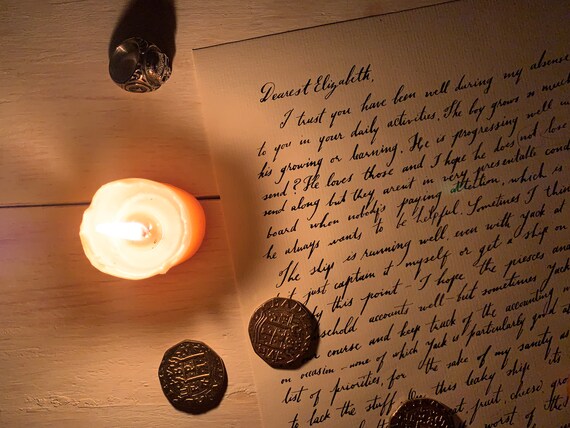 Dearest Elizabeth,
I trust you have been well during my absence
to you in your daily activities. The boy grows so much
his growing or learning. He is progressing well
send? He loves those and I hope he does not lose
send along but they aren't in very presentable cond
board when nobody's paying attention, which is
he always wants to be helpful. Sometimes I thin
The ship is running well, even with Jack at
just captain it myself or get a ship on
by this point - I hope the pieces and
household accounts well - but sometimes Jack
course and keep track of the accounting
on occasion - none of which Jack is particularly good at
list of priorities, for the sake of my sanity as
to lack the stuff. On this leaky ship, its
fruit, cheese,
worst of the